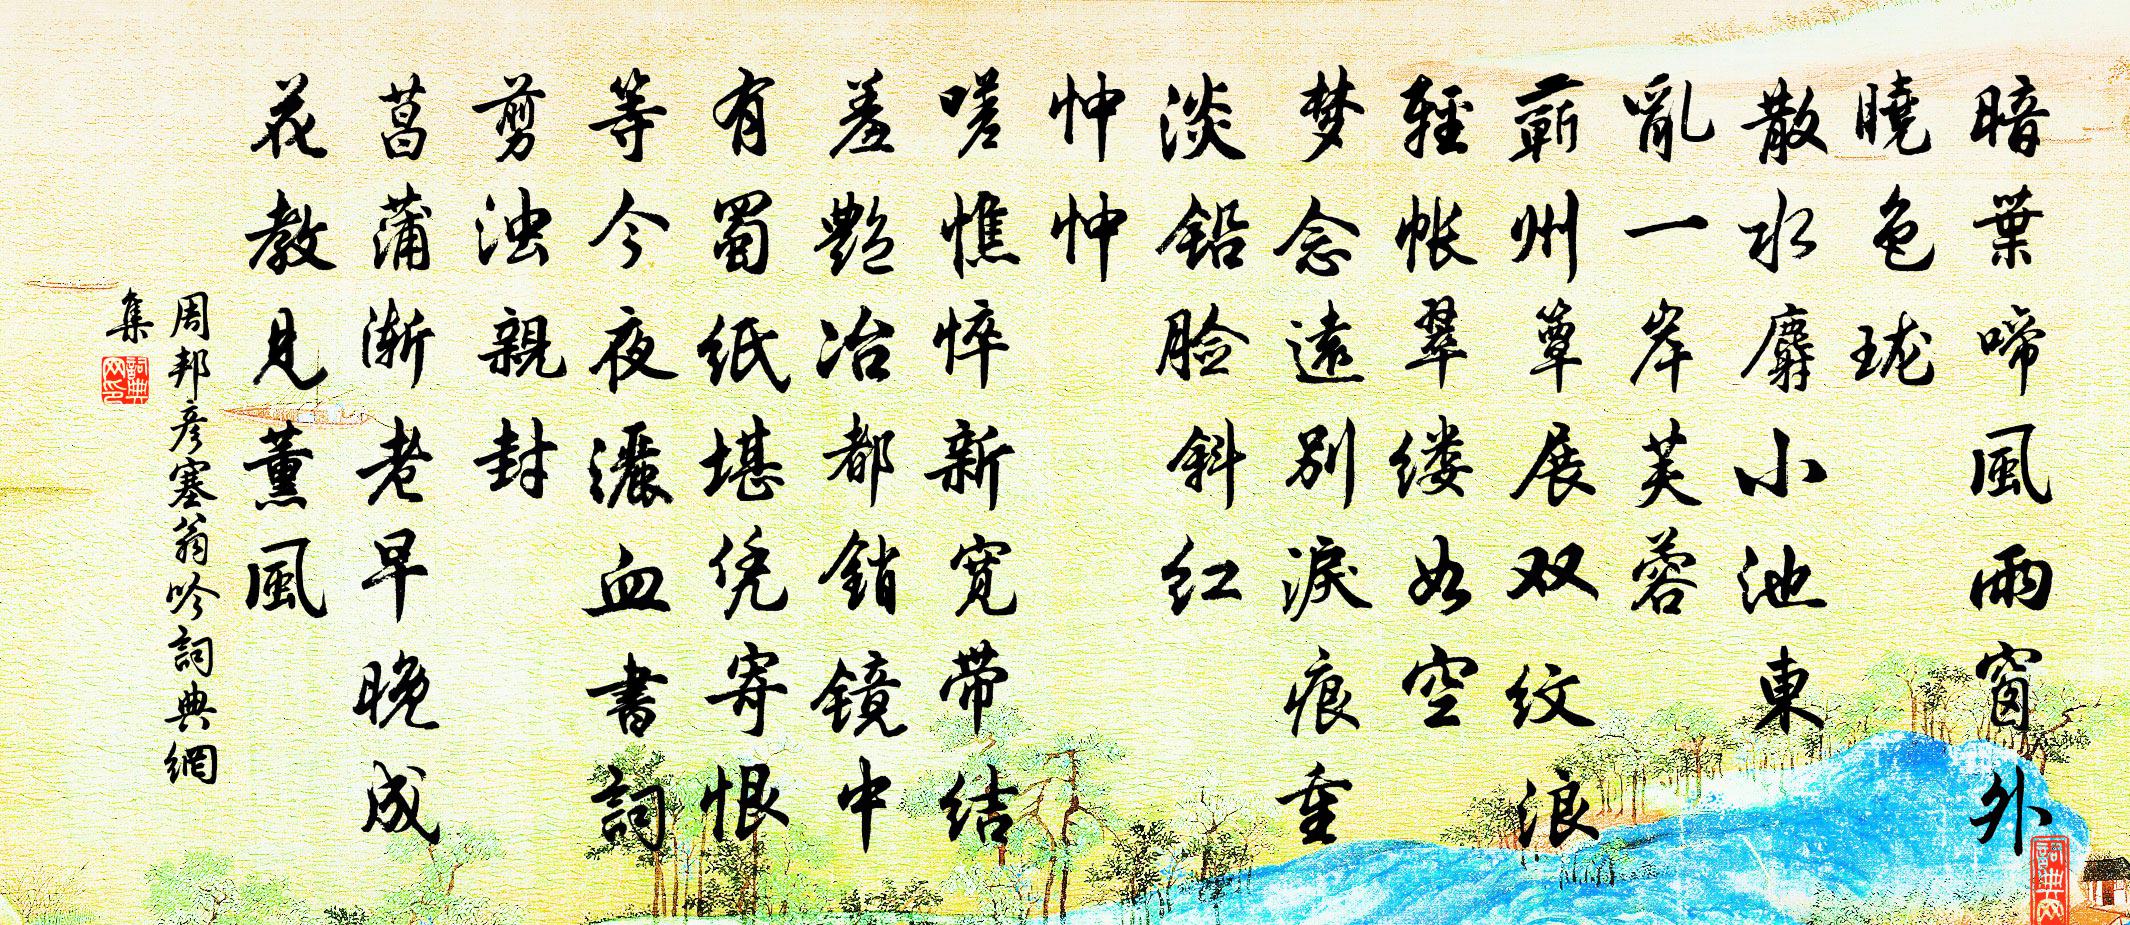 暗葉啼風雨窗外
曉色珑
散水麝小池東
亂一岸芙蓉
蕲州簟展双纹浪
輕帐翠缕如空
梦念遠别淚痕重
淡铅脸斜红
忡忡
嗟憔悴新寬带结
羞艷冶都销镜中
有蜀纸堪凭寄恨
等今夜灑血書詞
剪浊親封
菖蒲渐老早晚成
花教見薰風
周邦彦塞翁吟詞典網
集
詞典网印
詞典网